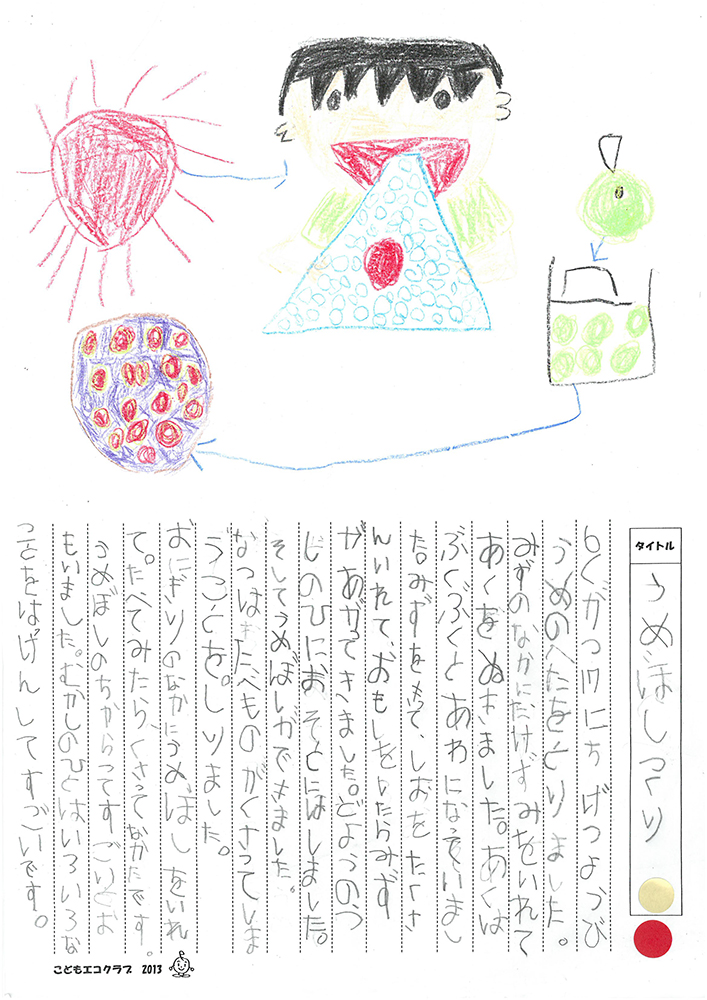 タイトル
うめぼしつくり
ろくがつ17にちげつようび
うめのへたをとりました。
みずのなかにだけずみをいれて
あくをぬきました。あくは
ぶくぶくとあわになっていまし
た。みずを、しおをたくさ
んいれて、おもしをしたらみず
があがってきました。どようのう
しのひにおそとにほしました。
そしてうめぼしができました。
なつはたべものがくさっていま
うことをしりました。
おにぎりのなかにうめぼしをいれ
て。たべてみたら、くさってなかたです。
うめぼしのちからってすごいとお
もいました。むかしのひとはいろいろな
ことをはっけんしてすごいです。
こどもエコクラブ 2013